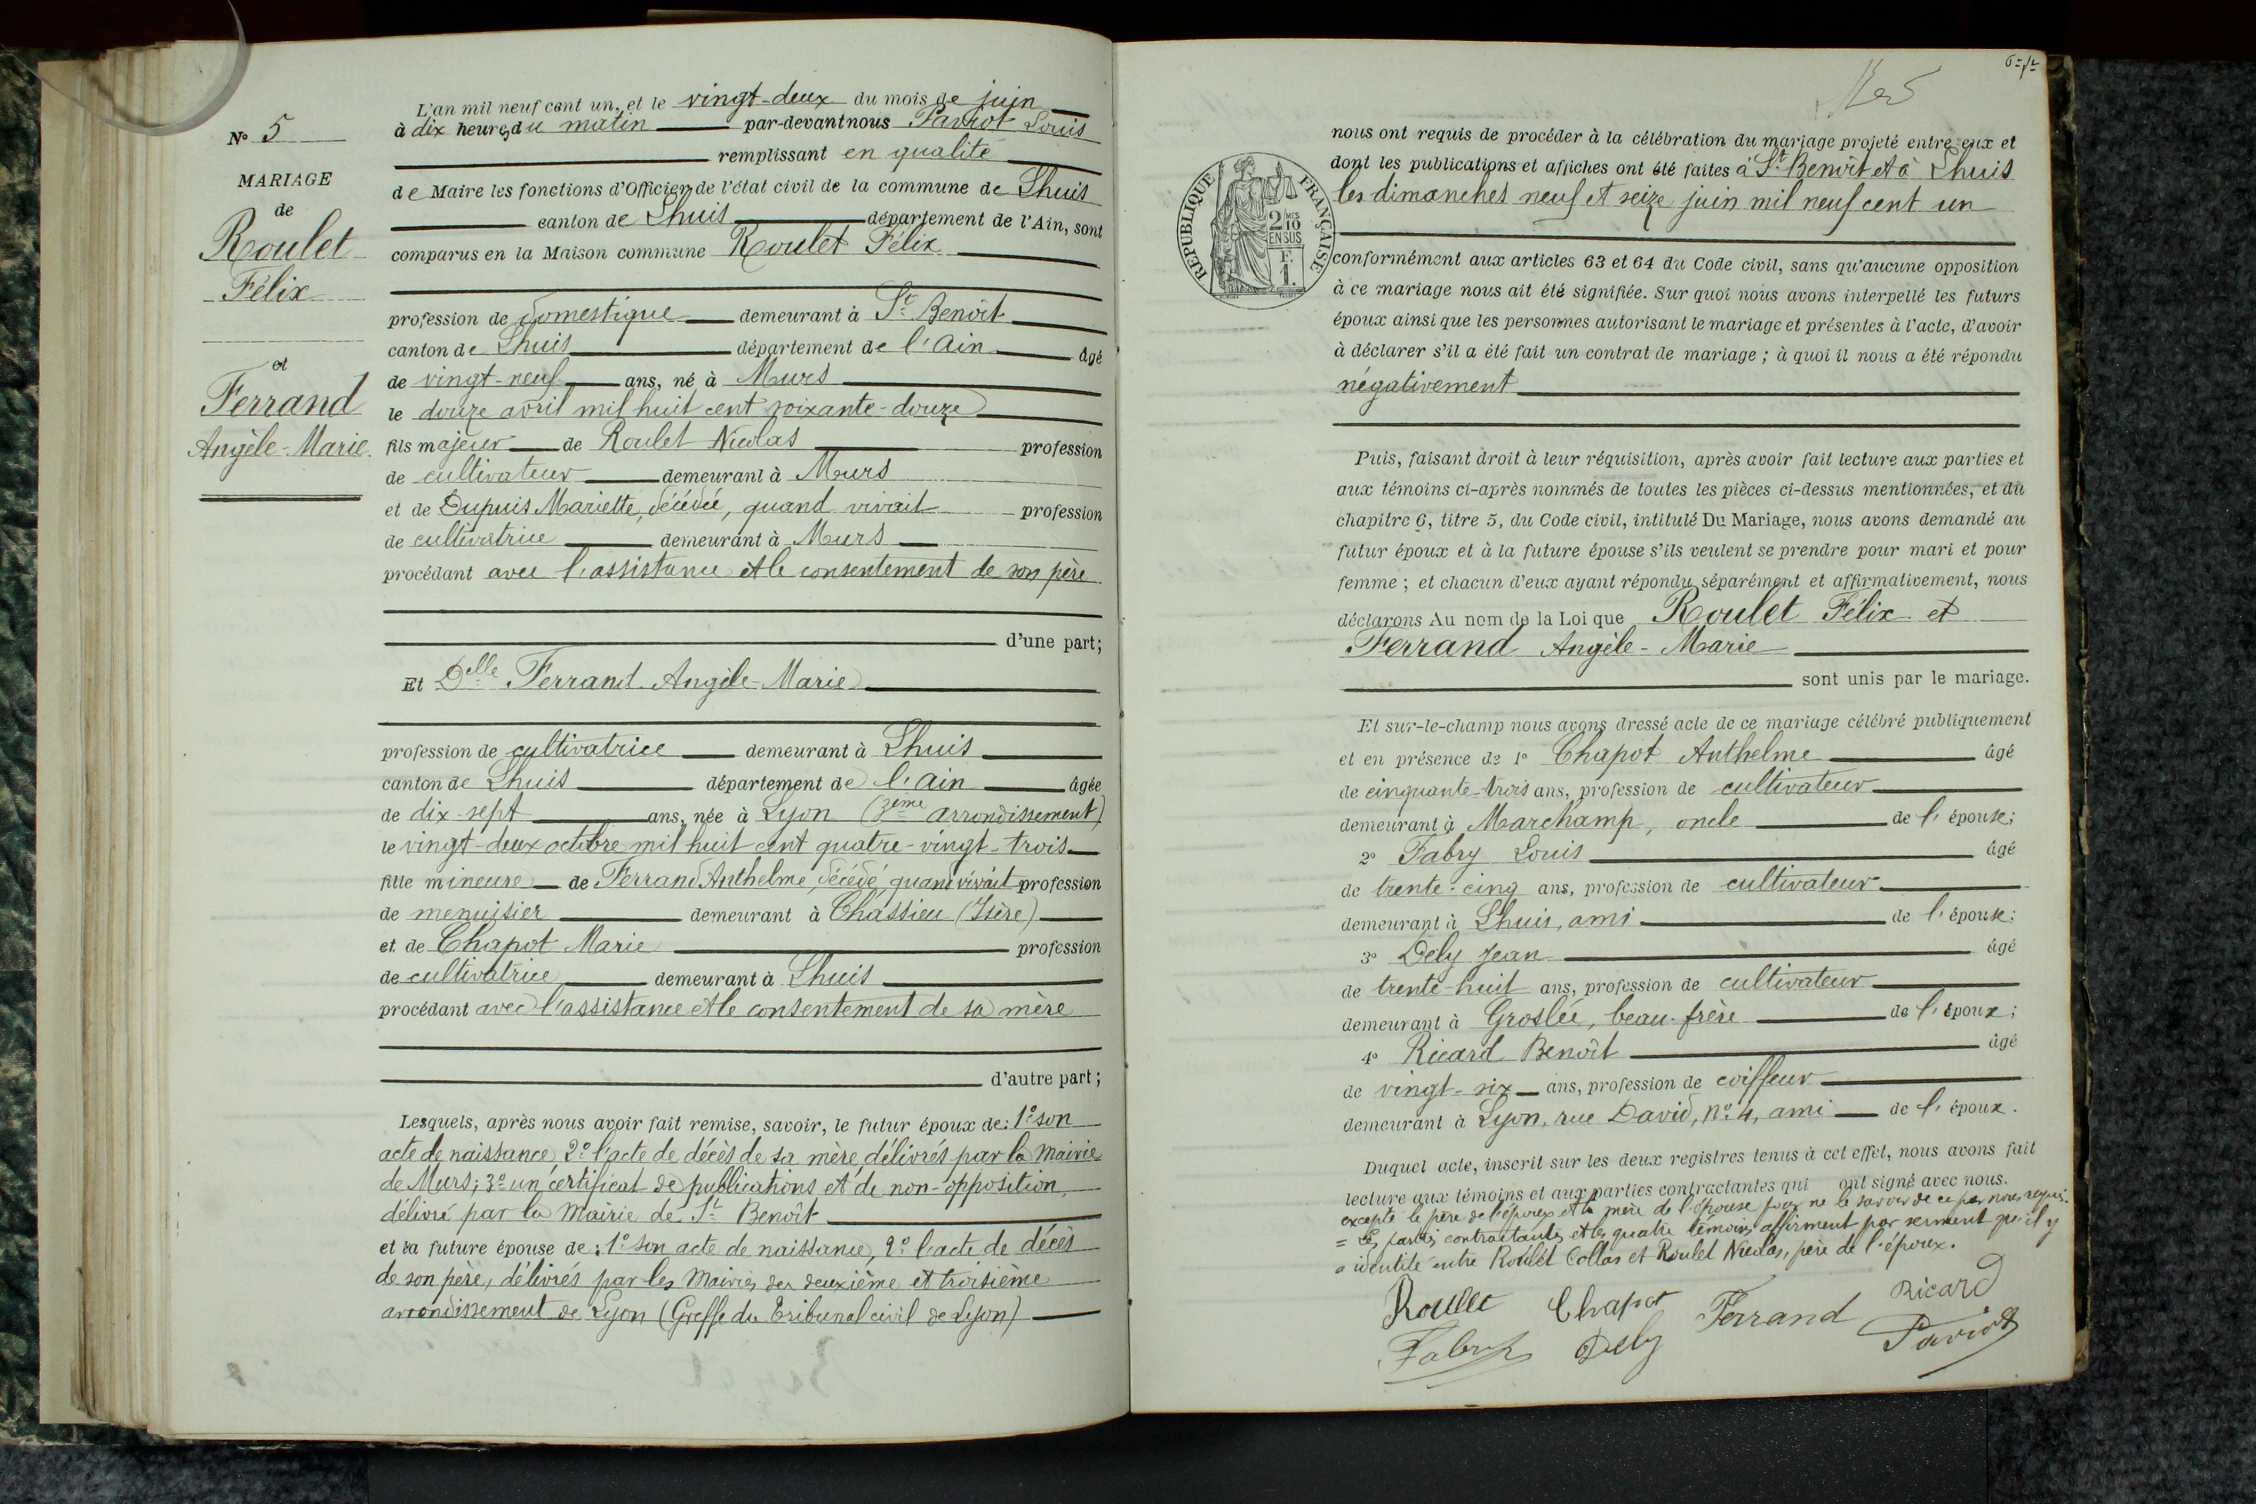 L'an mil neuf cent un, et le vingt-deux du mois de juin
N° 5
à dix heures du matin par-devant nous Paviot Louis
remplissant en qualité
MARIAGE
de Maire les fonctions d'Officier de l'état civil de la commune de Lhuis
de
canton de Lhuis département de l'Ain, sont
Roulet
comparus en la Maison commune Roulet Félix
Félix
profession de domestique demeurant à St Benoît
canton de Lhuis département de l'Ain âgé
et
de vingt-neuf ans, né à Murs
Ferrand
le douze avril mil huit cent soixante-douze
Angèle-Marie.
fils majeur de Roulet Nicolas profession
de cultivateur demeurant à Murs
et de Dupuis Mariette, décédée, quand vivait profession
de cultivatrice demeurant à Murs
procédant avec l'assistance et le consentement de son père
d'une part;
Et Delle Ferrand Angèle-Marie
profession de cultivatrice demeurant à Lhuis
canton de Lhuis département de l'Ain âgée
de dix-sept ans, née à Lyon (3ème arrondissement)
le vingt-deux octobre mil huit cent quatre-vingt-trois
fille mineure de Ferrand Anthelme, décédé, quand vivait profession
de menuisier demeurant à Chassieu (Isère)
et de Chapot Marie profession
de cultivatrice demeurant à Lhuis
procédant avec l'assistance et le consentement de sa mère
d'autre part;
Lesquels, après nous avoir fait remise, savoir, le futur époux de: 1° son
acte de naissance 2° l'acte de décès de sa mère, délivrés par la Mairie
de Murs; 3° un certificat de publications et de non-opposition,
délivré par la Mairie de St Benoît
et la future épouse de: 1° son acte de naissance, 2° l'acte de décès
de son père, délivrés par les Mairies des deuxième et troisième
arrondissement de Lyon (Greffe du Tribunal civil de Lyon)
nous ont requis de procéder à la célébration du mariage projeté entre eux et
dont les publications et affiches ont été faites à St Benoît et à Lhuis
les dimanches neuf et seize juin mil neuf cent un
RÉPUBLIQUE FRANÇAISE
2/10 EN SUS
F. 1.
conformément aux articles 63 et 64 du Code civil, sans qu'aucune opposition
à ce mariage nous ait été signifiée. Sur quoi nous avons interpellé les futurs
époux ainsi que les personnes autorisant le mariage et présentes à l'acte, d'avoir
à déclarer s'il a été fait un contrat de mariage; à quoi il nous a été répondu
négativement
Puis, faisant droit à leur réquisition, après avoir fait lecture aux parties et
aux témoins ci-après nommés de toutes les pièces ci-dessus mentionnées, et du
chapitre 6, titre 5, du Code civil, intitulé Du Mariage, nous avons demandé au
futur époux et à la future épouse s'ils veulent se prendre pour mari et pour
femme; et chacun d'eux ayant répondu séparément et affirmativement, nous
déclarons Au nom de la Loi que Roulet Félix et
Ferrand Angèle-Marie
sont unis par le mariage.
Et sur-le-champ nous avons dressé acte de ce mariage célébré publiquement
et en présence de 1° Chapot Anthelme âgé
de cinquante-trois ans, profession de cultivateur
demeurant à Marchamp, oncle de l'épouse;
2° Fabry Louis âgé
de trente-cinq ans, profession de cultivateur
demeurant à Lhuis, ami de l'épouse;
3° Dély Jean âgé
de trente-huit ans, profession de cultivateur
demeurant à Groslée, beau-frère de l'époux;
4° Ricard Benoît âgé
de vingt-six ans, profession de coiffeur
demeurant à Lyon, rue David, n° 4, ami de l'époux.
Duquel acte, inscrit sur les deux registres tenus à cet effet, nous avons fait
lecture aux témoins et aux parties contractantes qui ont signé avec nous.
excepté le père de l'époux et la mère de l'épouse pour ne le savoir de ce par nous requis.
= Les parties contractantes et les quatre témoins affirment par serment qu'il y
a identité entre Roulet Collas et Roulet Nicolas, père de l'époux.
Roulet Chapot Ferrand Ricard
Fabry Dely Paviot